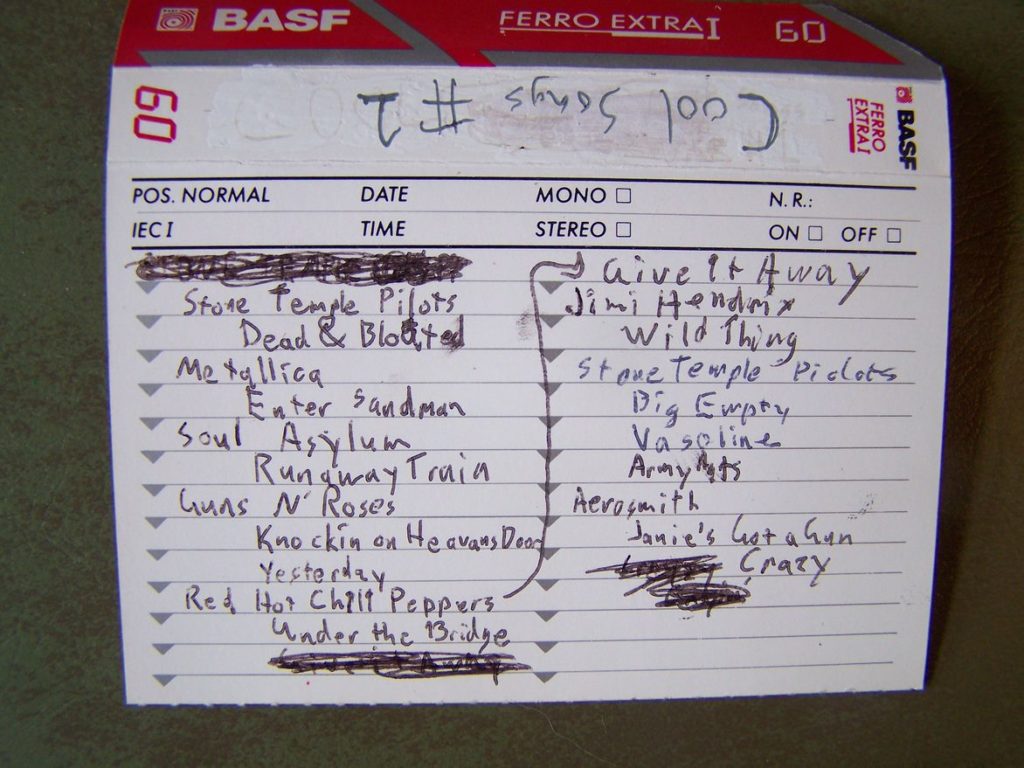 BASF FERRO EXTRA I 60
60 Cool Songs #1 BASF FERRO EXTRA I
POS. NORMAL DATE MONO N.R.:
IEC I TIME STEREO ON OFF
Stone Temple Pilots
Dead & Bloated
Metallica
Enter Sandman
Soul Asylum
Runaway Train
Guns N' Roses
Knockin on HeavansDoor
Yesterday
Red Hot Chili Peppers
Under the Bridge
Give it Away
Give It Away
Jimi Hendrix
Wild Thing
Stone Temple Pidots
Big Empty
Vasoline
Army Ants
Aerosmith
Janie's Got a Gun
Crazy